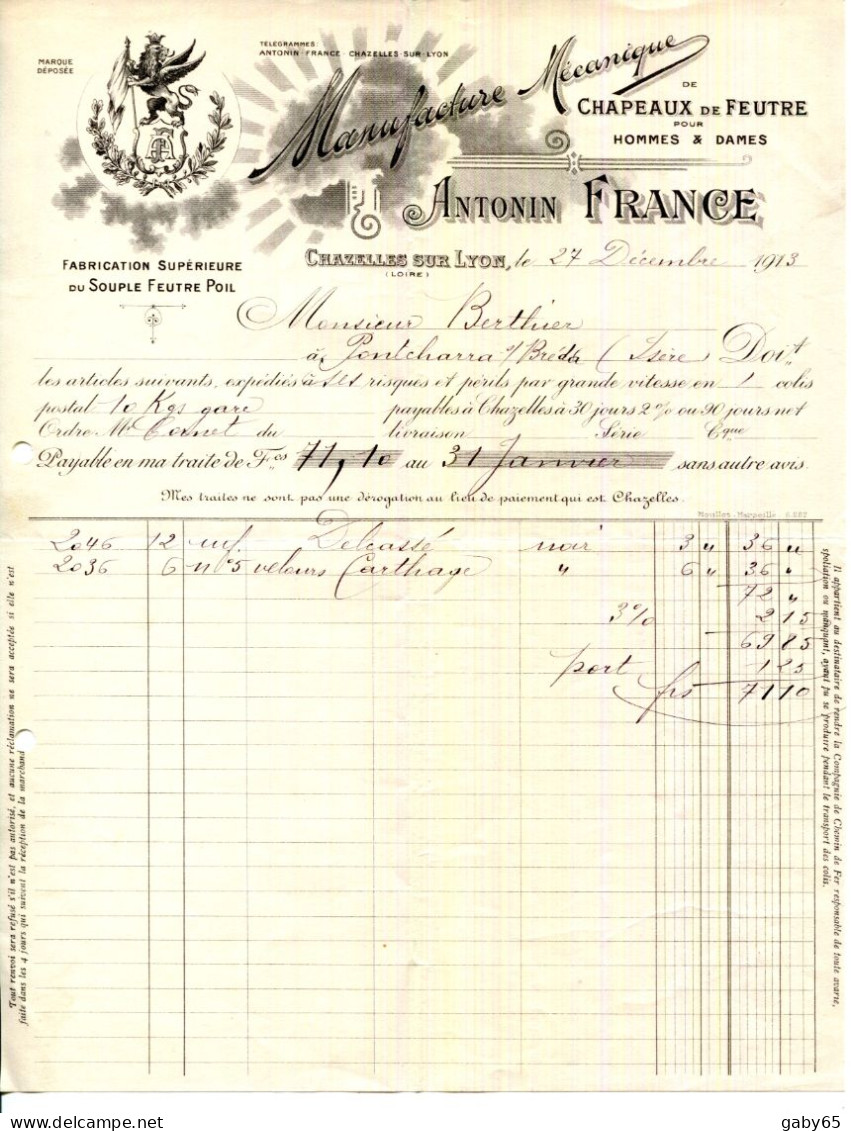 MARQUE
DÉPOSÉE
TÉLÉGRAMMES:
ANTONIN-FRANCE-CHAZELLES-SUR-LYON
Manufacture Mécanique
DE
CHAPEAUX DE FEUTRE
POUR
HOMMES & DAMES
ANTONIN FRANCE
FABRICATION SUPÉRIEURE
DU SOUPLE FEUTRE POIL
CHAZELLES SUR LYON, le 27 Décembre 1913
(LOIRE)
Monsieur Berthier
à Pontcharra s/ Bréda (Isère) Doit
les articles suivants, expédiés à ses risques et périls par grande vitesse en 1 colis
postal 10 Kgs gare payables à Chazelles à 30 jours 2% ou 90 jours net
Ordre Mr Cornet du livraison Série Cque
Payable en ma traite de Fcs 71,10 au 31 Janvier sans autre avis.
Mes traites ne sont pas une dérogation au lieu de paiement qui est Chazelles.
Moullot-Marseille
2046 12 Delcassé noir 3 " 36 "
2036 6 n°5 velours Carthage " 6 " 36 "
72 "
3% 2 15
69 85
port 1 25
frs 71 10
Tout renvoi sera refusé s'il n'est pas autorisé, et aucune réclamation ne sera acceptée si elle n'est
faite dans les 4 jours qui suivent la réception de la marchand
Il appartient au destinataire de rendre la Compagnie de Chemin de Fer responsable de toute avarie,
spoliation ou manquant, ayant pu se produire pendant le transport des colis.
gaby65